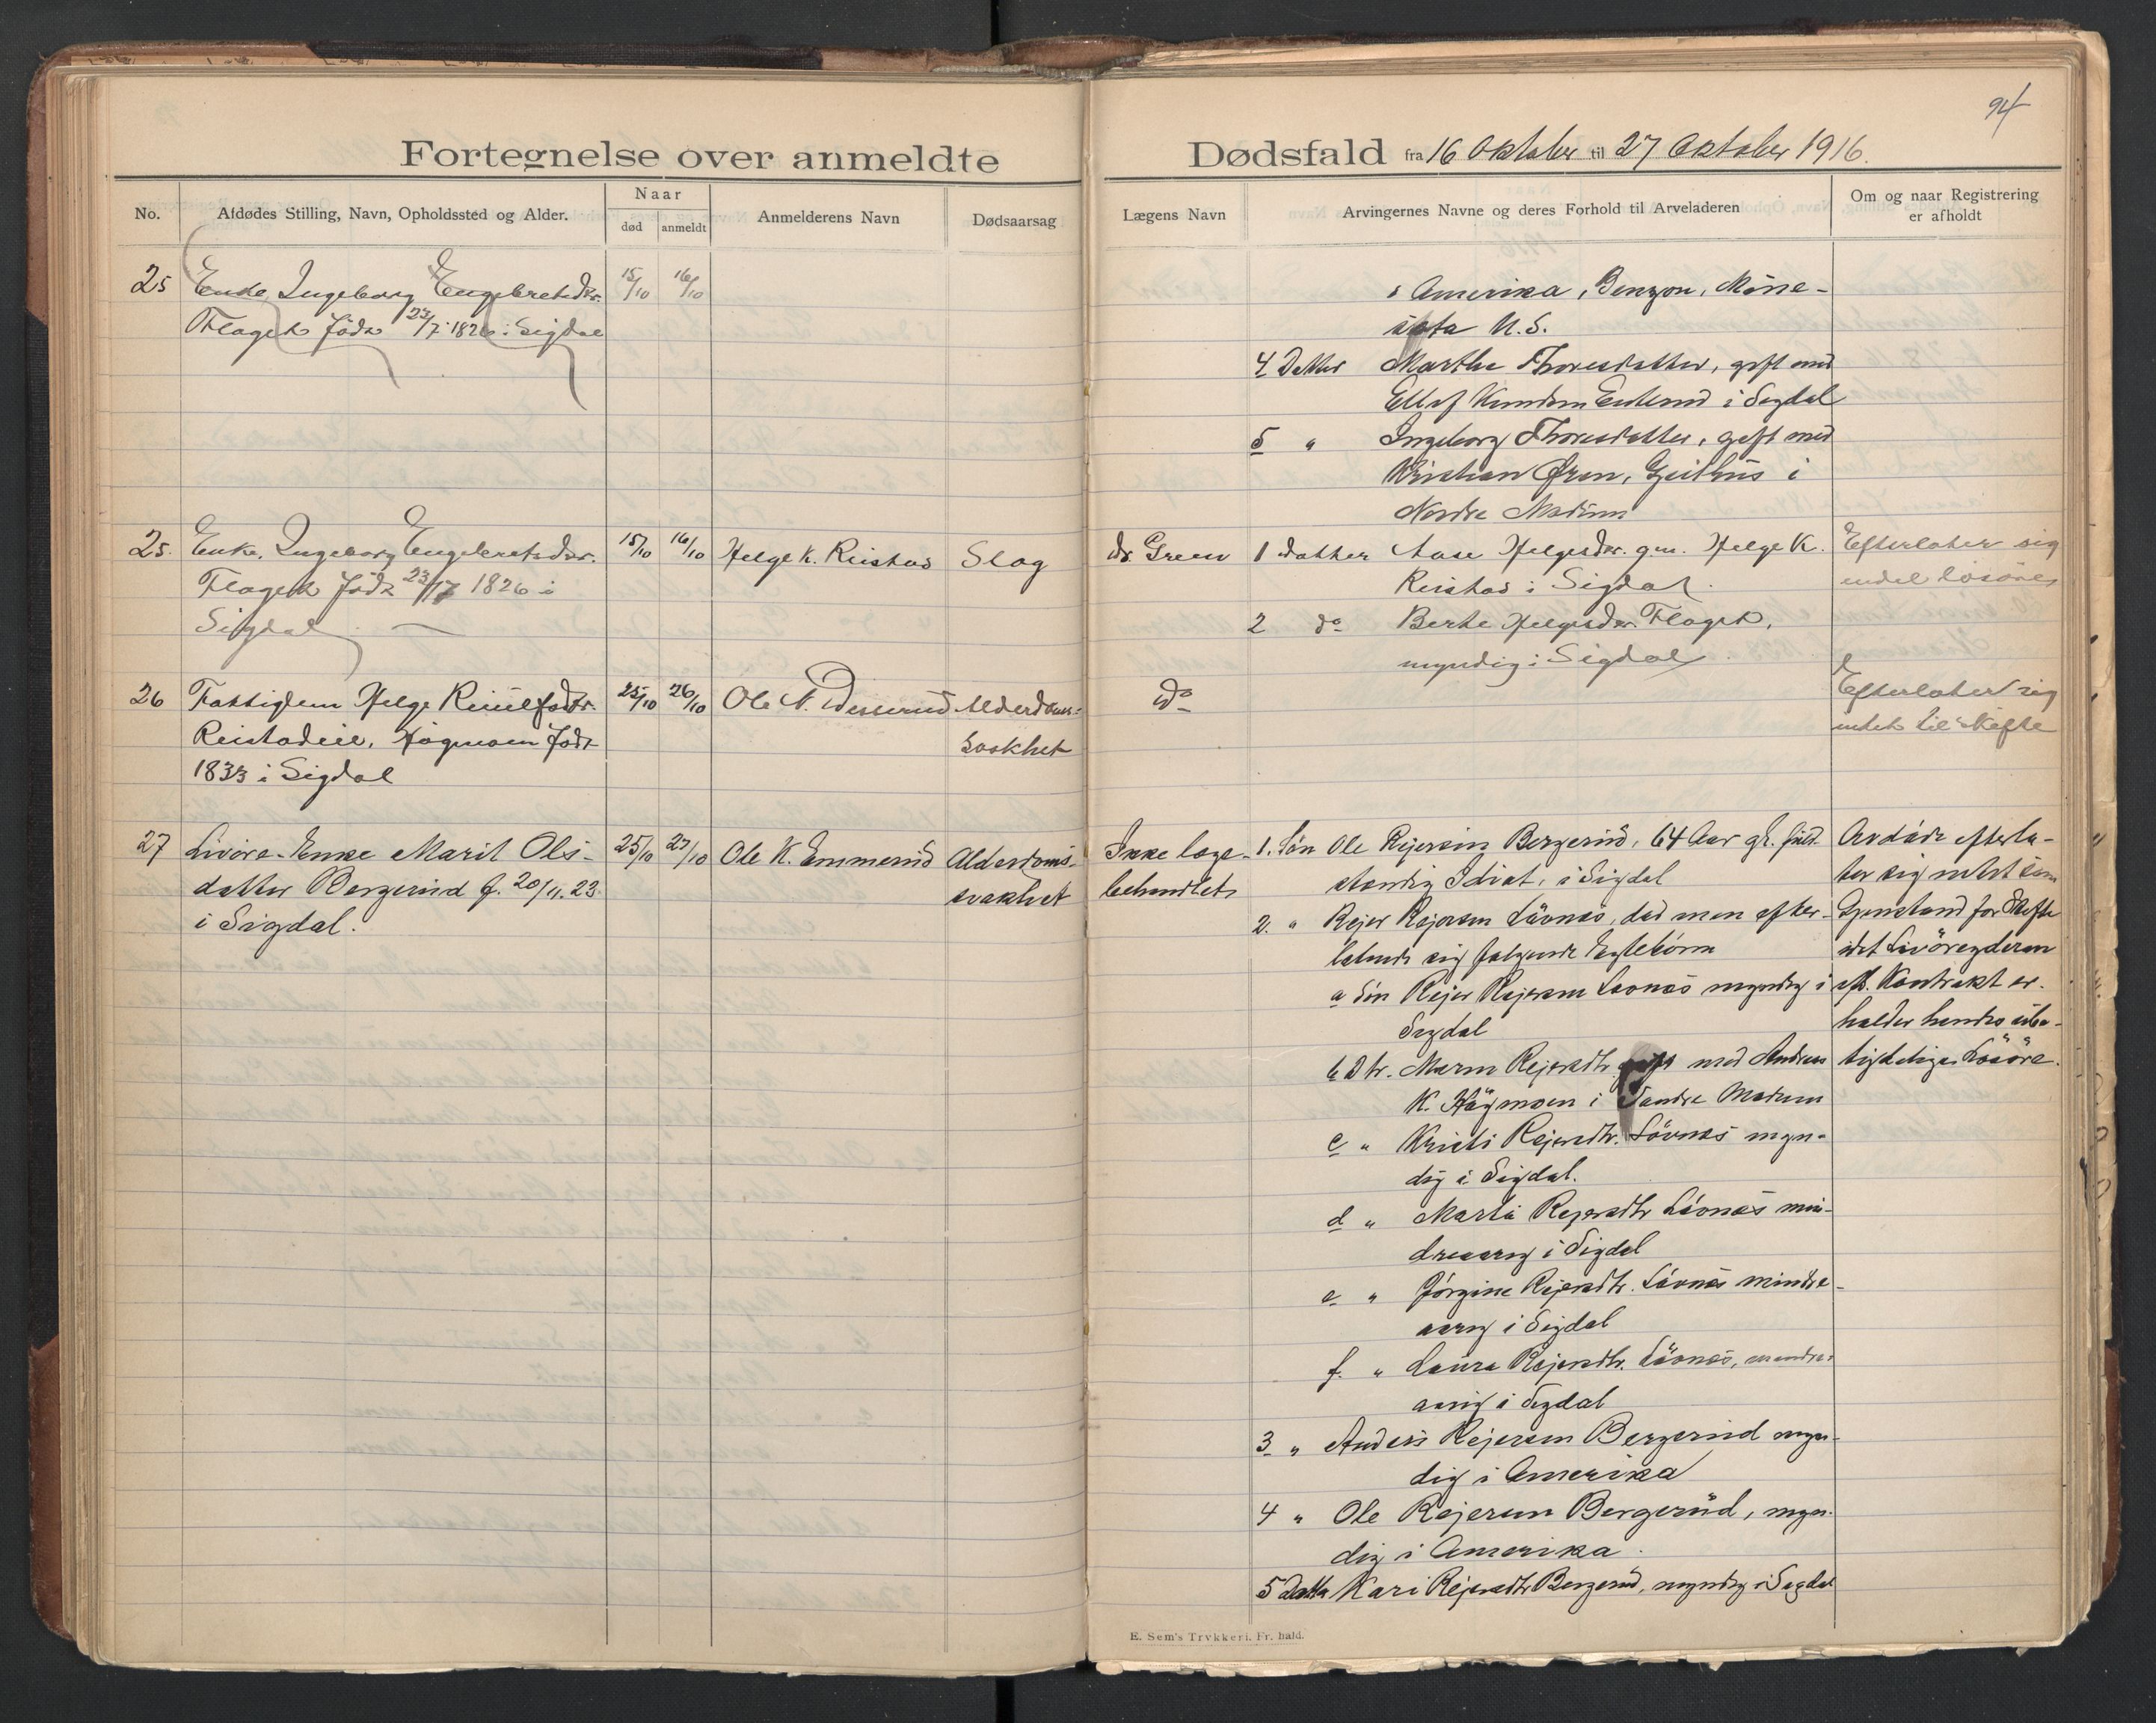 94
Fortegnelse over anmeldte Dødsfald fra 16 Oktober til 27 Oktober 1916.
No. Afdødes Stilling, Navn, Opholdssted og Alder. Naar død anmeldt Anmelderens Navn Dødsaarsag
Lægens Navn Arvingernes Navne og deres Forhold til Arveladeren Om og naar Registrering er afholdt
25 Enke, Ingeborg Engebretsdr. 15/10 16/10
Flagek född 23/7 1826 i Sigdal
i Amerika, Benzon, Mine-
sota U.S.
4 Datter Marthe Thoresdatter, gift med
Ellef Knudsen Enlund i Sigdal
5 " Ingeborg Thoresdatter, gift med
Kristian Øren, Geithus i
Nordre Modum
25. Enke, Ingeborg Engebretsdr. 15/10 16/10 Helge K. Reistad Slag
Flagek född 23/7 1826 i
Sigdal
Dr. Green 1 datter Aase Helgesdr. gm. Helge K.
Reistad i Sigdal.
2 do Berte Helgesdr. Flagek,
myndig i Sigdal
Efterlater sig
endel løsøre
26 Fattiglem Helge 25/10 26/10 Ole N. Alderdoms-
Reistadeie, Högmoen född svakhet
1833 i Sigdal
do
Efterlater sig
intet til skifte
27 Livöre-Enke Marit Ols- 25/10 27/10 Ole K. Emmerud Alderdoms-
datter Bergerud f. 20/11.23 svakhet
i Sigdal.
Ikke læge-
behandlet
1. Sön Ole Rejersen Bergerud, 64 Aar gl. fuld-
stendig Idiot, i Sigdal
2. " Rejer Rejersen Lövnes, död men efter-
latende sig følgende Ægtebörn
a Sön Rejer Rejersen Lövnes myndig i
Sigdal
b Dtr. Maren Rejersdtr. gift med Andreas
K. Högmoen i Söndre Modum
c " Kristi Rejersdtr. Lövnes myn-
dig i Sigdal.
d " Marta Rejersdtr Lövnes min-
dreaarig i Sigdal
e " Jörgine Rejersdtr. Lövnes mindre-
aarig i Sigdal
f. " Laura Rejersdtr. Lövnes, mindre-
aarig i Sigdal
3 " Anders Rejersen Bergerud myn-
dig i Amerika
4 " Ole Rejersen Bergerud, myn-
dig i Amerika.
5 Datter Kari Rejersdtr Bergerud, myndig i Sigdal
Avdöde efterla-
ter sig intet som
Gjenstand for Skifte
idet Livöregderen
eft. Kontrakt er-
holder hendes ube-
tydelige Lösöre.
E. Sem's Trykkeri. Fr.hald.